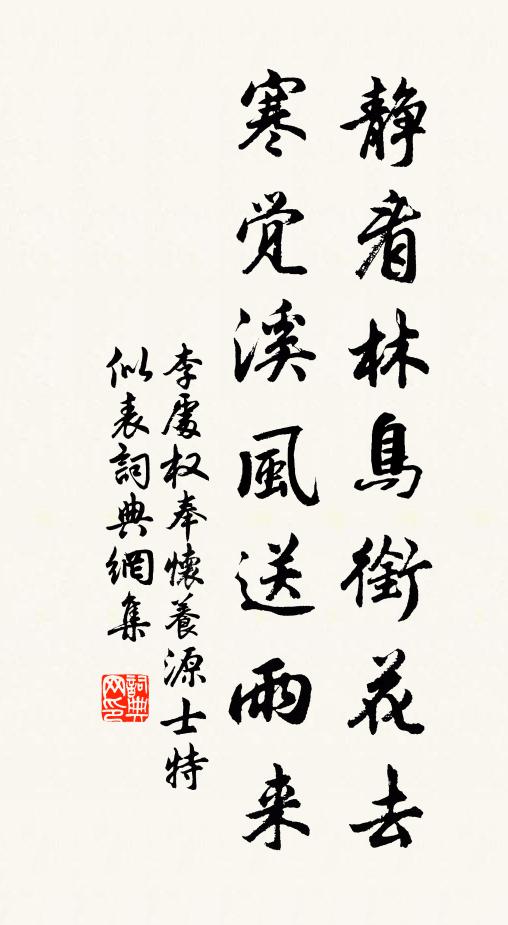 静看林鳥銜花去
寒觉溪風送雨来
李處权奉懷養源士特
似表詞典網集
詞典
网印